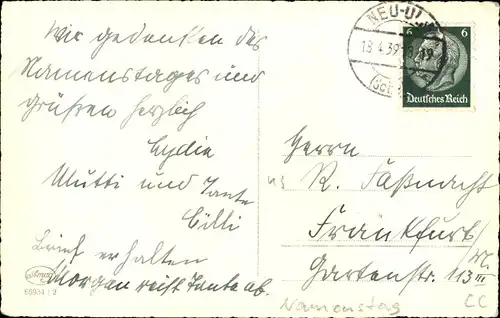 Wir gedenken des
Namenstages und
grüßen herzlich
Lydia
Mutti und Tante
Cilli
Brief erhalten
Morgen reist Tante ab.
Amag
66934 12
NEU-UL
18.4.39
6 6
Deutsches Reich
Herrn
R. Faßnacht
Frankfurt/M.
Gartenstr. 113 III
Namenstag
CC